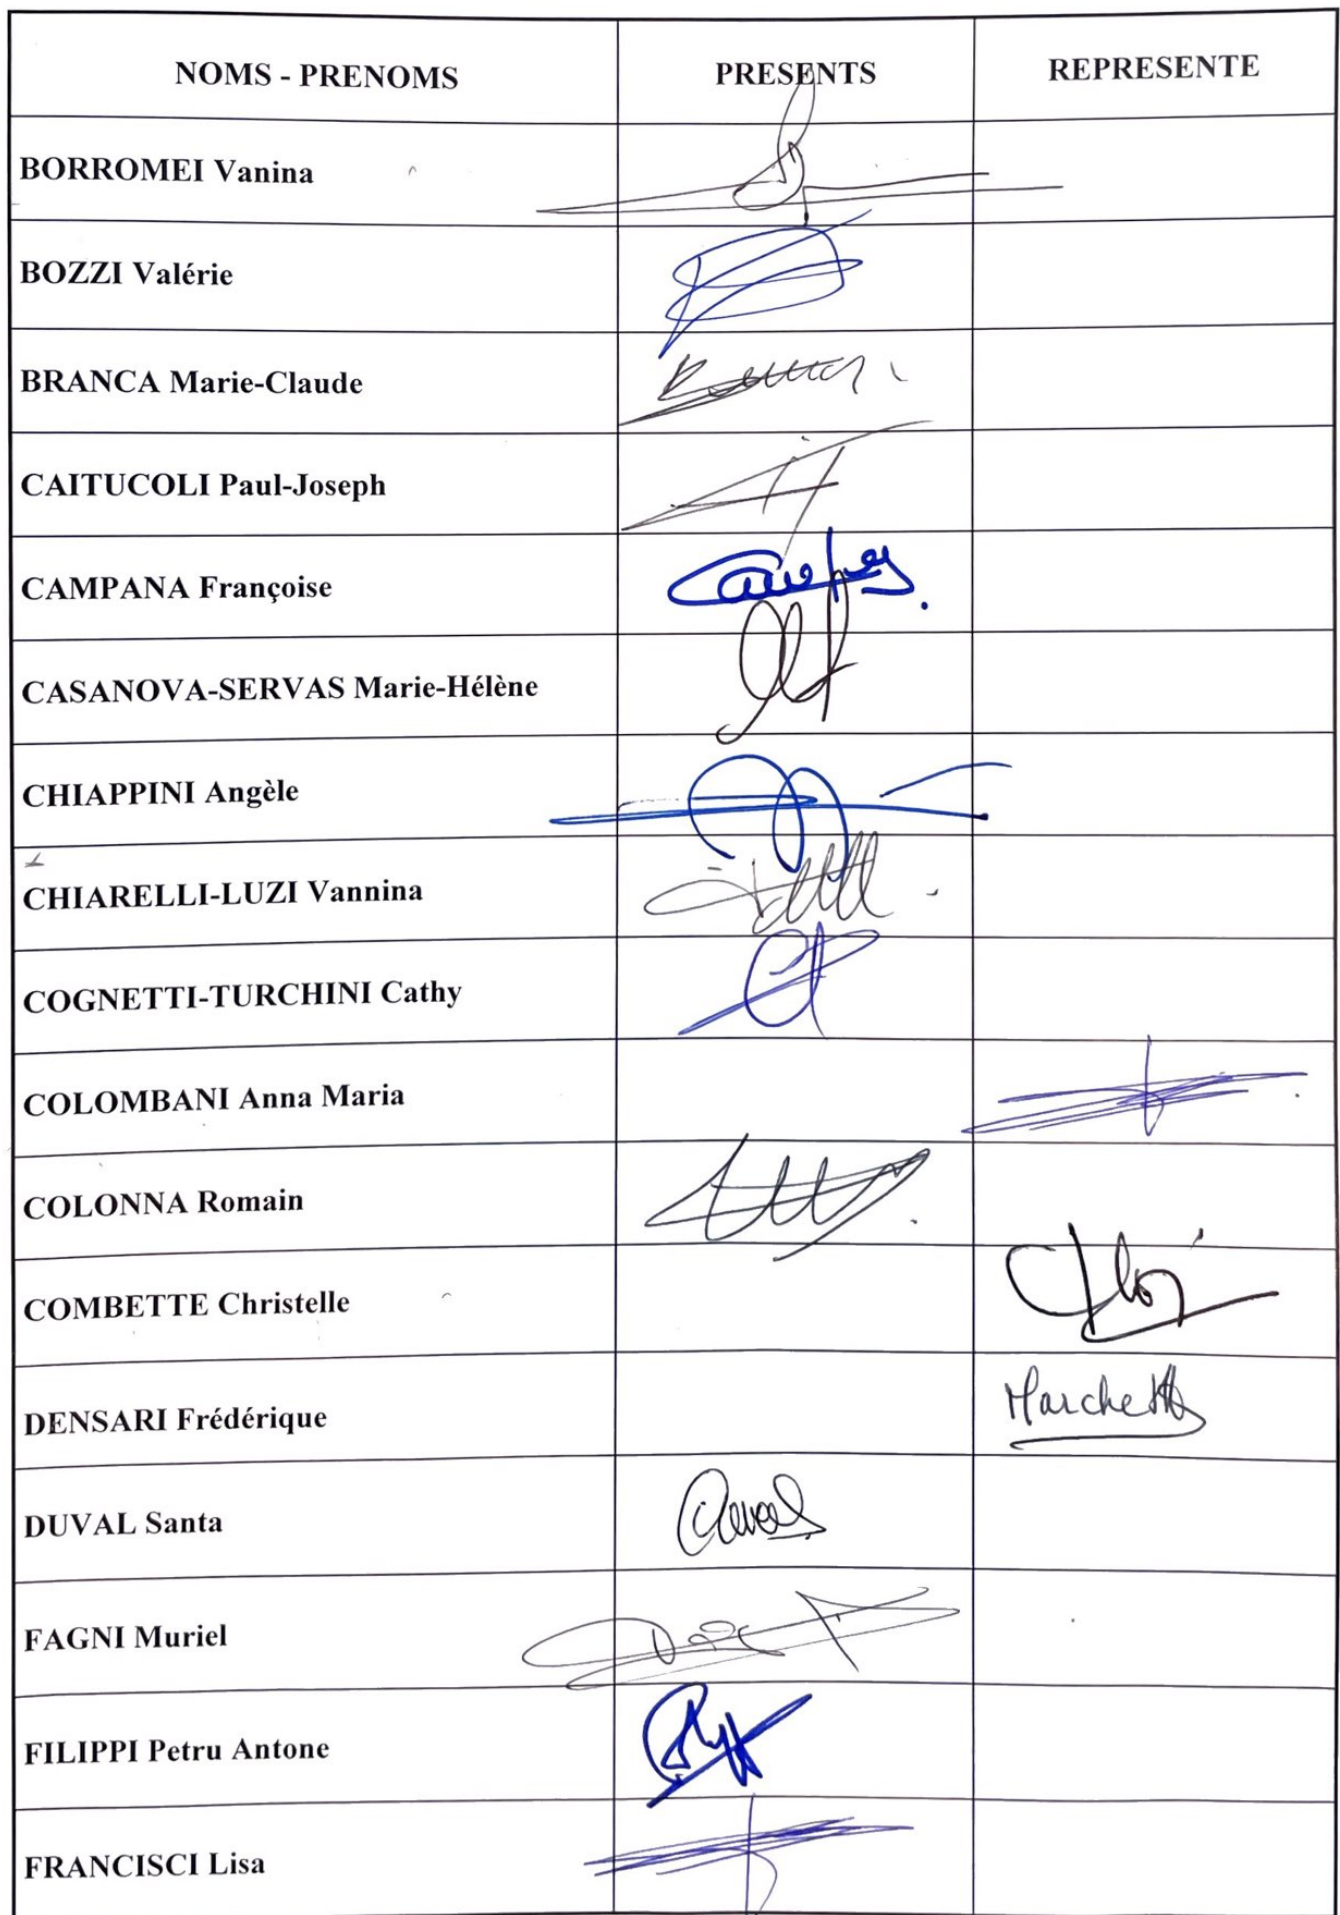 NOMS - PRENOMS PRESENTS REPRESENTE
BORROMEI Vanina
BOZZI Valérie
BRANCA Marie-Claude
CAITUCOLI Paul-Joseph
CAMPANA Françoise
CASANOVA-SERVAS Marie-Hélène
CHIAPPINI Angèle
CHIARELLI-LUZI Vannina
COGNETTI-TURCHINI Cathy
COLOMBANI Anna Maria
COLONNA Romain
COMBETTE Christelle
DENSARI Frédérique Marchetti
DUVAL Santa
FAGNI Muriel
FILIPPI Petru Antone
FRANCISCI Lisa